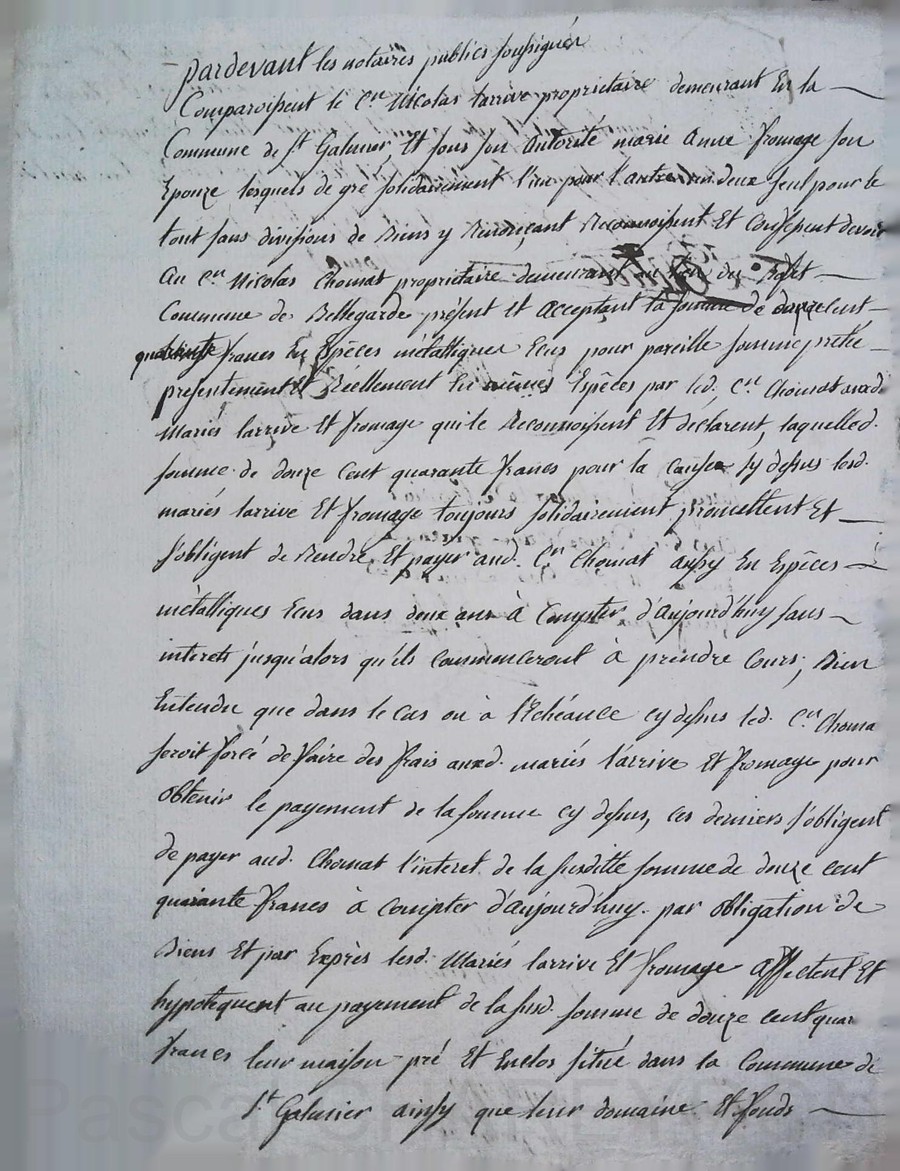 pardevant les notaires publics soussignés
Comparoissent le C.en Nicolas Larrive proprietaire demeurant En la
Commune de S.t Galmier, Et sous son autorité marie anne fromage son
Epouze lesquels de gré solidairement l'un pour l'autre un deux seul pour le
tout sans divisions de Biens y Renonçant Reconnoissent Et Confessent devoir
Au C.en Nicolas Chomat proprietaire demeurant au du
Commune de Bellegarde présent Et acceptant la somme de douze Cent
quarante francs En Espèces métalliques Ecus pour pareille somme prêté
présentement Et Réellement En mêmes Espèces par led. C.en Chomat auxd.
Mariés larrive Et fromage qui le Reconnoissent Et declarent, laquelled.
somme de douze Cent quarante francs pour la Cause Cy dessus lesd.
mariés larrive Et fromage toujours solidairement promettent Et
s'obligent de Rendre Et payer aud. C.en Chomat aussy En Espèces
métalliques Ecus dans deux ans à Compter d'aujourd'huy sans
interets jusqu'alors qu'ils Commenceront à prendre Cours, Bien
Entendu que dans le Cas ou à l'Echéance Cy dessus led. C.en Choma
seroit forcé de faire des frais auxd. mariés larrive Et fromage pour
obtenir le payement de la somme Cy dessus, Ces derniers s'obligent
de payer aud. Chomat l'interet de la susditte somme de douze cent
quarante francs à Compter d'aujourd'huy. par obligation de
Biens Et par Exprès lesd. Mariés larrive Et fromage affectent Et
hypotequent au payement de la susd. somme de douze cent quar
francs leur maison pré Et Enclos situé dans la Commune de
S.t Galmier ainsy que leur domaine Et fonds